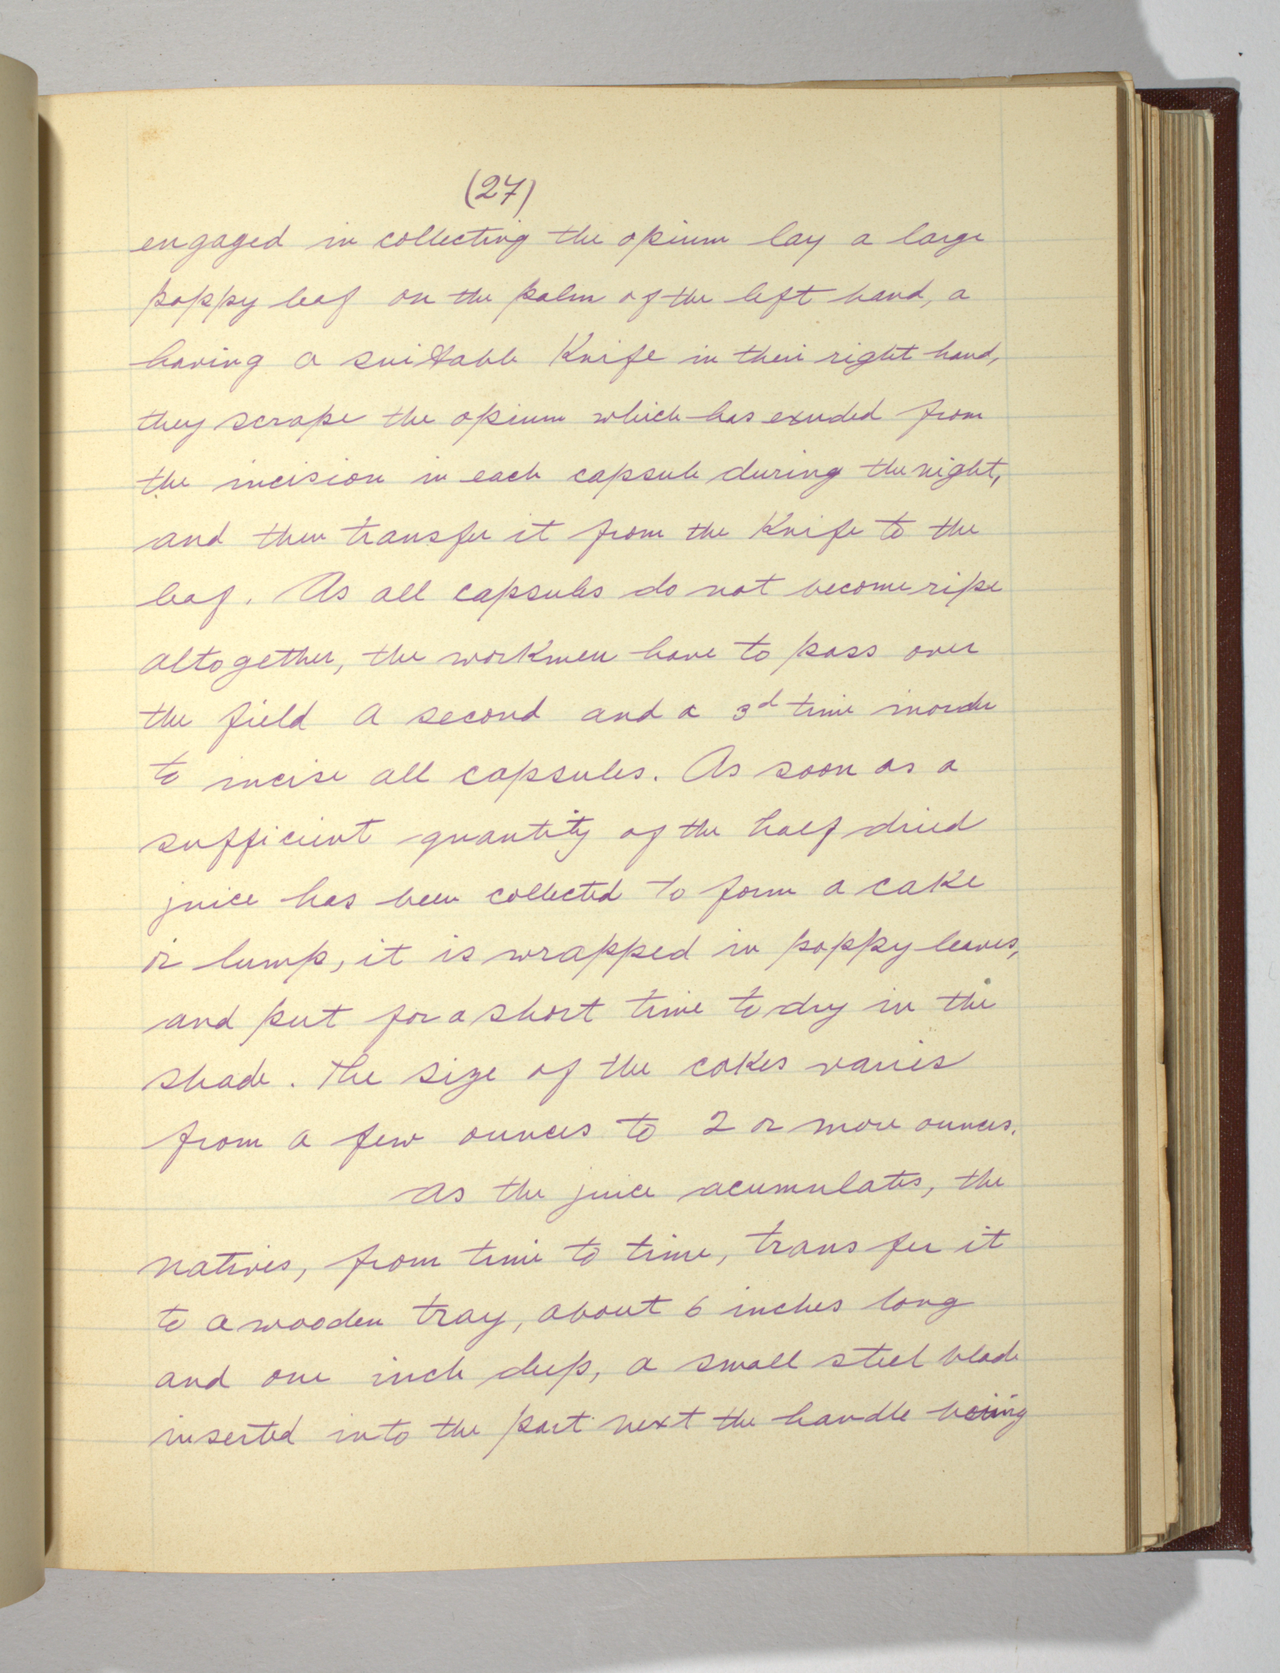 (27)
engaged in collecting the opium lay a large
poppy leaf on the palm of the left hand, a
having a suitable Knife in their right hand,
they scrape the opium which has exuded from
the incision in each capsule during the night,
and then transfer it from the Knife to the
leaf. As all capsules do not become ripe
altogether, the workmen have to pass over
the field a second and a 3d time inorder
to incise all capsules. As soon as a
sufficient quantity of the half dried
juice has been collected to form a cake
or lump, it is wrapped in poppy leaves,
and put for a short time to dry in the
shade. The size of the cakes varies
from a few ounces to 2 or more ounces.
as the juice acumulates, the
natives, from time to time, transfer it
to a wooden tray, about 6 inches long
and one inch deep, a small steel blade
inserted into the part next the handle being